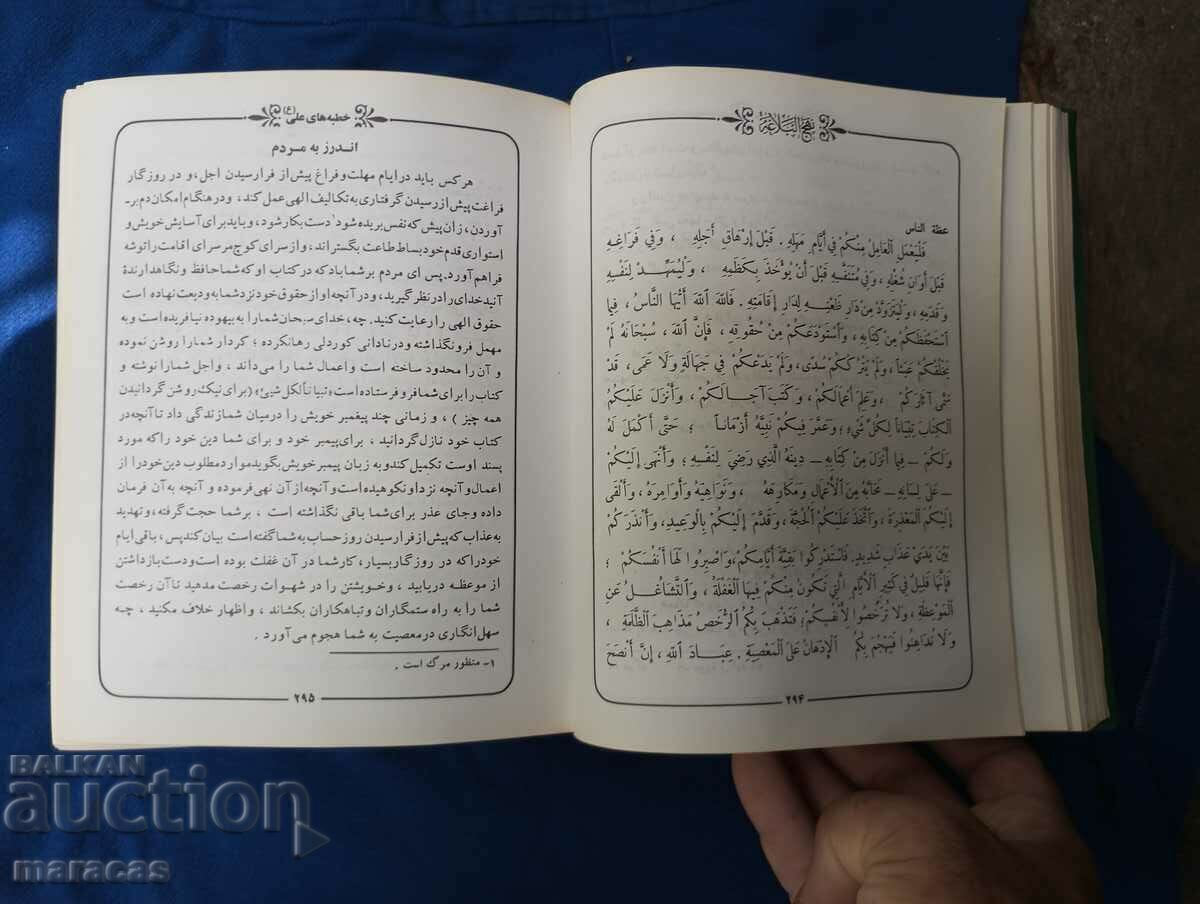 نهج البلاغة
عظة الناس
فَلْيَعْمَلِ الْعَامِلُ مِنْكُمْ فِي أَيَّامِ مَهَلِهِ . قَبْلَ إِرْهَاقِ أَجَلِهِ ، وَفِي فَرَاغِهِ
قَبْلَ أَوَانِ شُغْلِهِ ، وَفِي مُتَنَفَّسِهِ قَبْلَ أَنْ يُؤْخَذَ بِكَظَمِهِ ، وَلْيُمَهِّدْ لِنَفْسِهِ
وَقَدَمِهِ ، وَلْيَتَزَوَّدْ مِنْ دَارِ ظَعْنِهِ لِدَارِ إِقَامَتِهِ . فَاللهَ اللهَ أَيُّهَا النَّاسُ ، فِيمَا
اسْتَحْفَظَكُمْ مِنْ كِتَابِهِ، وَاسْتَوْدَعَكُمْ مِنْ حُقُوقِهِ ، فَإِنَّ اللهَ ، سُبْحَانَهُ لَمْ
يَخْلُقْكُمْ عَبَثاً ، وَلَمْ يَتْرُكْكُمْ سُدًى، وَلَمْ يَدَعْكُمْ فِي جَهَالَةٍ وَلَا عَمًى، قَدْ
سَمَّى آثَارَكُمْ ، وَعَلِمَ أَعْمَالَكُمْ ، وَكَتَبَ آجَالَكُمْ ، وَأَنْزَلَ عَلَيْكُمُ
الْكِتَابَ تِبْيَاناً لِكُلِّ شَيْءٍ ؛ وَعَمَّرَ فِيكُمْ نَبِيَّهُ أَزْمَاناً ؛ حَتَّى أَكْمَلَ لَهُ
وَلَكُمْ – فِيمَا أَنْزَلَ مِنْ كِتَابِهِ – دِينَهُ الَّذِي رَضِيَ لِنَفْسِهِ ؛ وَأَنْهَى إِلَيْكُمْ
– عَلَى لِسَانِهِ – مَحَابَّهُ مِنَ الْأَعْمَالِ وَمَكَارِهَهُ ، وَنَوَاهِيَهُ وَأَوَامِرَهُ ، وَأَلْقَى
إِلَيْكُمُ الْمَعْذِرَةَ ، وَاتَّخَذَ عَلَيْكُمُ الْحُجَّةَ ، وَقَدَّمَ إِلَيْكُمْ بِالْوَعِيدِ، وَأَنْذَرَكُمْ
بَيْنَ يَدَيْ عَذَابٍ شَدِيدٍ. فَاسْتَدْرِكُوا بَقِيَّةَ أَيَّامِكُمْ، وَاصْبِرُوا لَهَا أَنْفُسَكُمْ ؛
فَإِنَّهَا قَلِيلٌ فِي كَثِيرِ الْأَيَّامِ الَّتِي تَكُونُ مِنْكُمْ فِيهَا الْغَفْلَةُ ، وَالتَّشَاغُلُ عَنِ
الْمَوْعِظَةِ ، وَلَا تُرَخِّصُوا لِأَنْفُسِكُمْ؛ فَتَذْهَبَ بِكُمُ الرُّخَصُ مَذَاهِبَ الظَّلَمَةِ ،
وَلَا تُدَاهِنُوا فَيَهْجُمَ بِكُمُ الْإِدْهَانُ عَلَى الْمَعْصِيَةِ . عِبَادَ اللهِ ، إِنَّ أَنْصَحَ
۲۹۴
خطبه های علی (ع)
اندرز به مردم
هرکس باید در ایام مهلت و فراغ پیش از فرارسیدن اجل، و در روزگار
فراغت پیش از رسیدن گرفتاری به تکالیف الهی عمل کند ، و در هنگام امکان دم بر ـ
آوردن، زان پیش که نفس بریده شود۱ دست بکار شود، و باید برای آسایش خویش و
استواری قدم خود بساط طاعت بگستراند، و از سرای کوچ مر سرای اقامت را توشه
فراهم آورد. پس ای مردم بر شما باد که در کتاب او که شما حافظ و نگاهدارندهٔ
آنید خدای را در نظر گیرید، و در آنچه او از حقوق خود نزد شما به ودیعت نهاده است
حقوق الهی را رعایت کنید. چه، خدای سبحان شما را به بیهوده نیافریده است و به
مهمل فرونگذاشته و در نادانی کوردلی رها نکرده ؛ کردار شما را روشن نموده
و آن را محدود ساخته است و اعمال شما را می داند ، و اجل شما را نوشته و
کتاب را برای شما فرو فرستاده است «تبیاناً لکل شیئ» (برای نیک روشن گردانیدن
همه چیز ) ، و زمانی چند پیغمبر خویش را درمیان شما زندگی داد تا آنچه در
کتاب خود نازل گردانید ، برای پیمبر خود و برای شما دین خود را که مورد
پسند اوست تکمیل کند و به زبان پیمبر خویش بگوید موارد مطلوب دین خود را از
اعمال و آنچه نزد او نکوهیده است و آنچه از آن نهی فرموده و آنچه به آن فرمان
داده و جای عذر برای شما باقی نگذاشته است ، بر شما حجت گرفته، و تهدید
به عذاب که پیش از فرارسیدن روز حساب به شما گفته است بیان کند پس، باقی ایام
خود را که در روزگار بسیار، کار شما در آن غفلت بوده است و دست بازداشتن
از موعظه دریابید ، و خویشتن را در شهوات رخصت مدهید تا آن رخصت
شما را به راه ستمگاران و تباهکاران بکشاند ، و اظهار خلاف مکنید ، چه
سهل انگاری در معصیت به شما هجوم می آورد .
۱- منظور مرگ است .
۲۹۵
BALKAN
auction
maracas